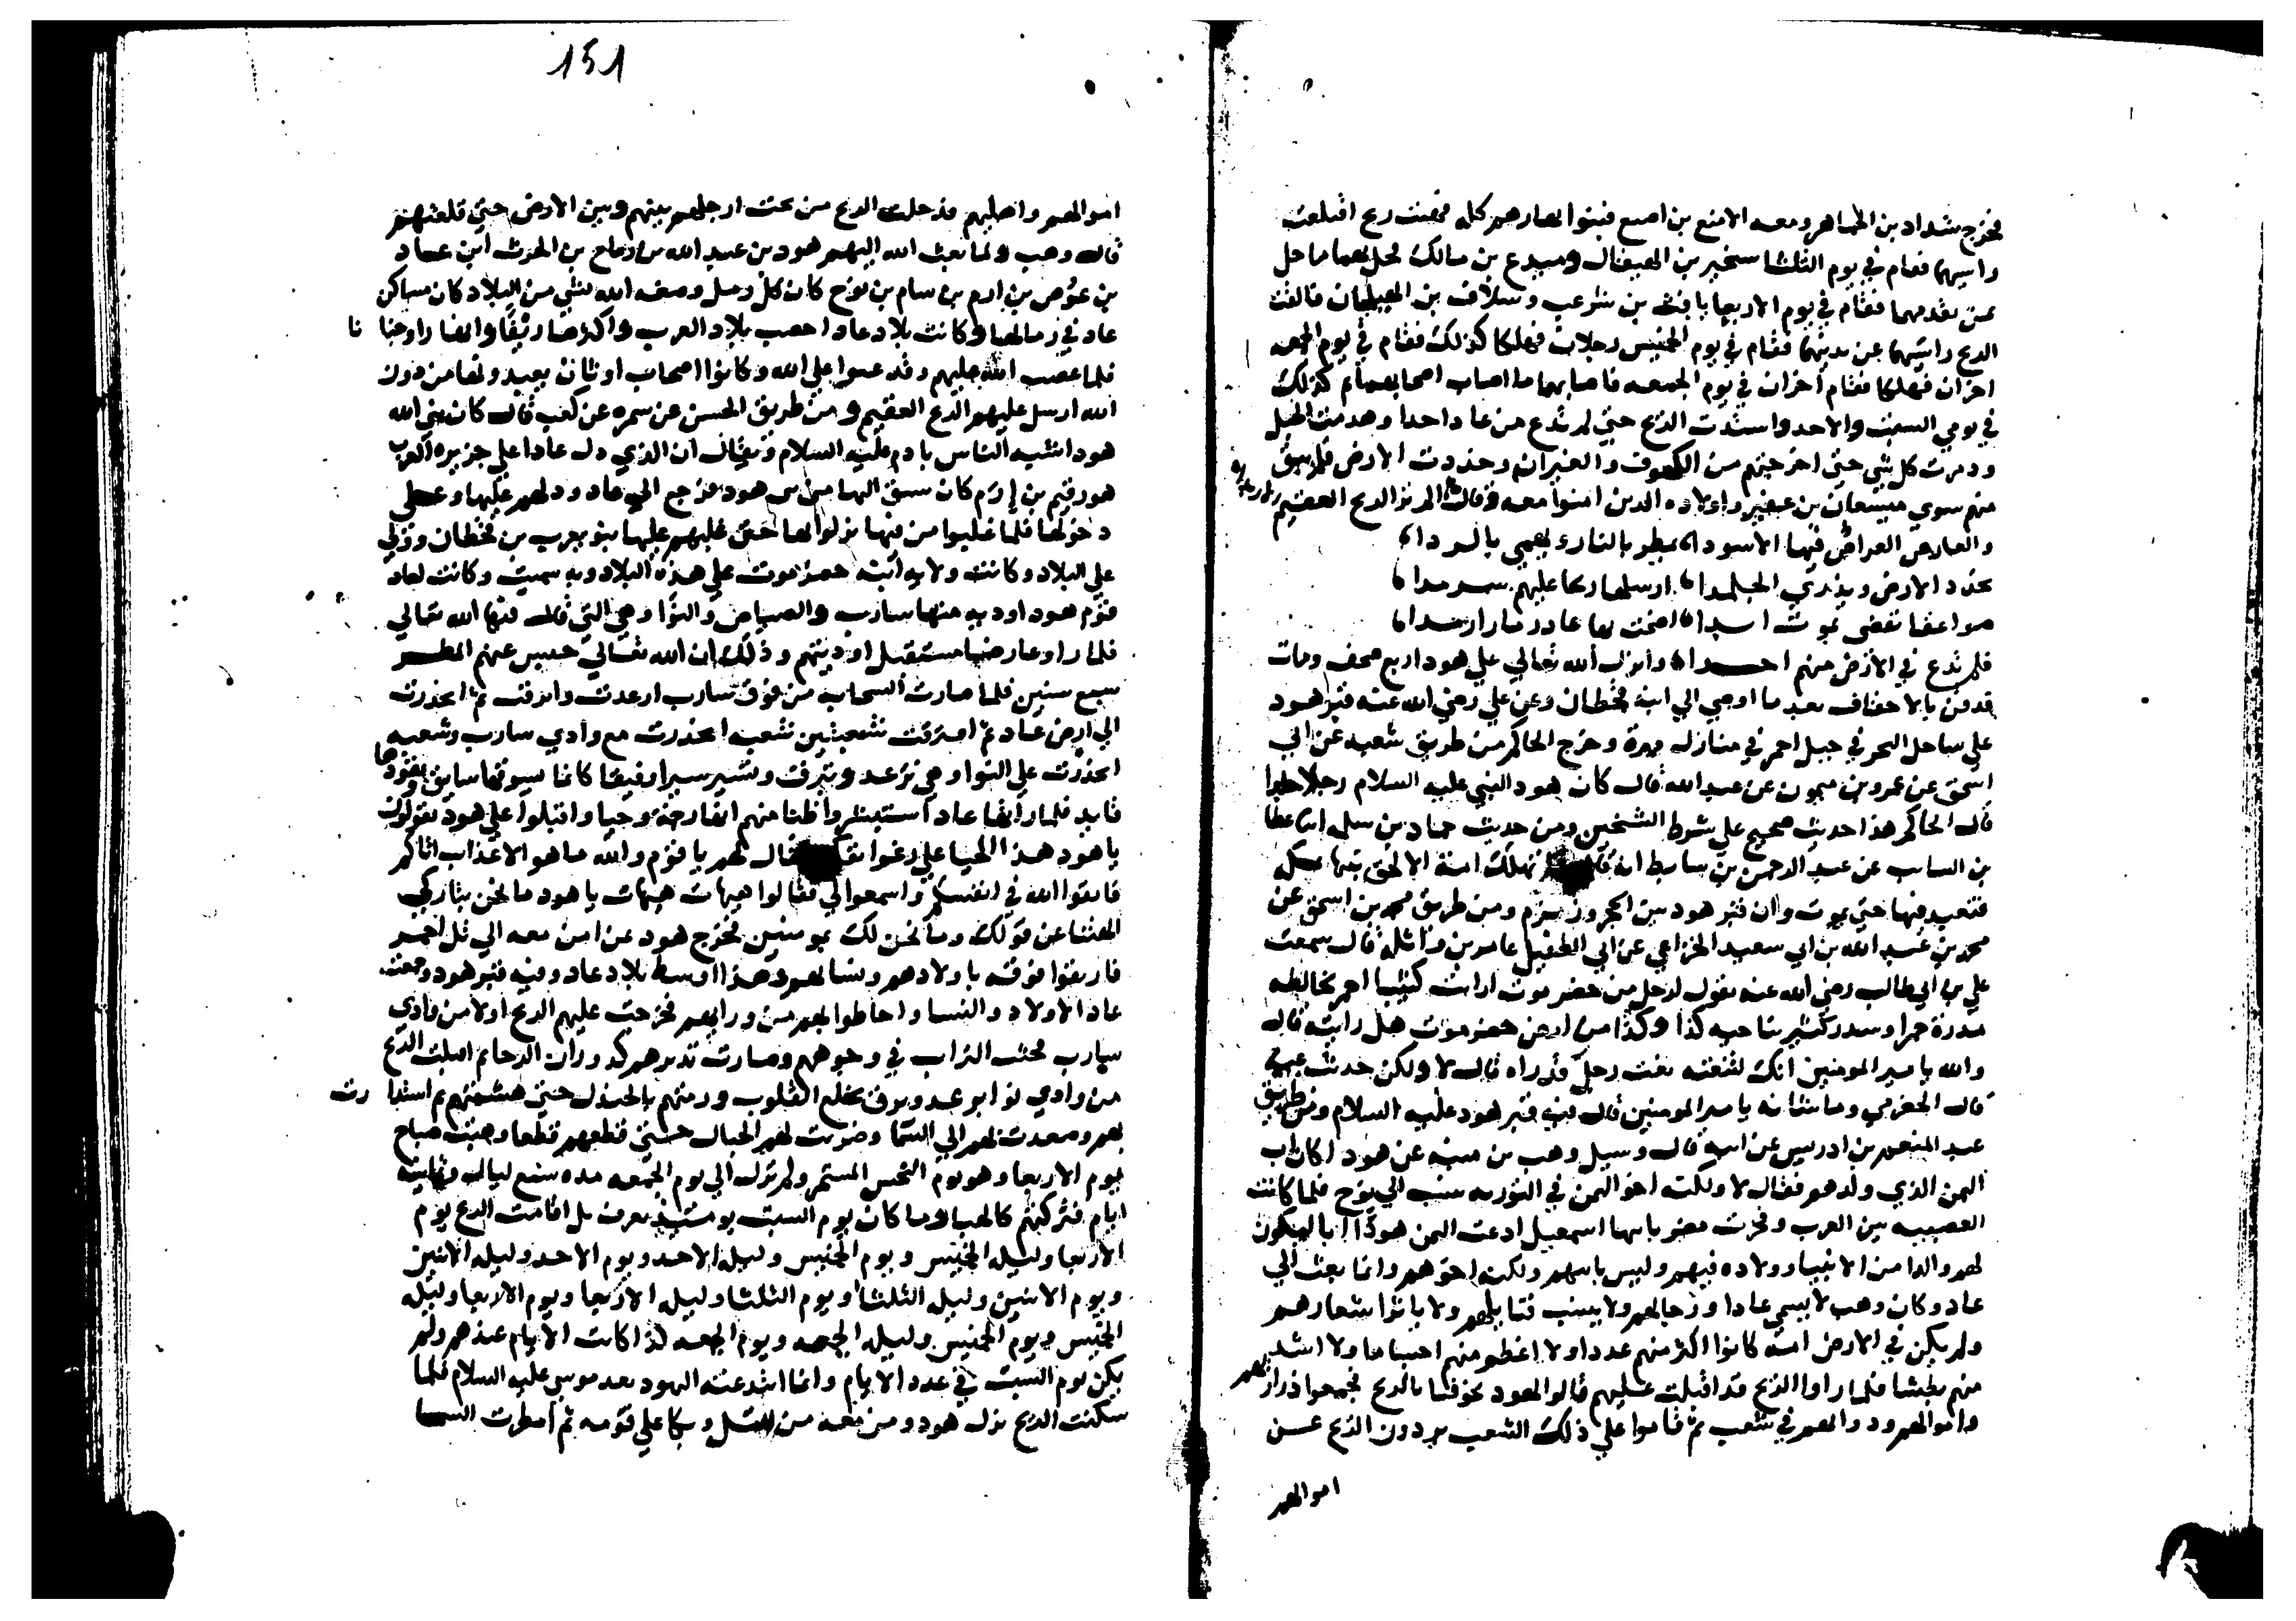 فخرج شداد بن الجماهر ومعه الامنع بن اصنع فبنوا ابصارهم كله فهبت ريح اقبلعت
راسيهما فقام في يوم الثلثا سخير بن الهيفال وميدع بن مالك فحل بهما ما حل
بمن تقدمهما فقام في يوم الاربعا يافث بن شرعب وسلاف بن الهيلمان فالقت
الريح راسيهما عن بدنيهما فقام في يوم الخميس رجلان فهلكا كذلك فقام في يوم الجمعه
اخران فهلكا فقام اخران في يوم الجمعه فاصابهما ما اصاب اصحابهما ثم كذلك
في يومي السبت والاحد واشتدت الريح حتي لم تدع من عاد احدا وهدمت الجبل
ودمرت كل شي حتي اخرجتهم من الكهوف والغيران وخددت الارض فلم يبق
منهم سوي ميسعان بن عفير واولاده الدين امنوا معه وقال الم تر الريح العقيم
والعارض العراض فيها الاسودا يمطر بالنار يهمي بالردا
تخدد الارض ويذري الجلمدا ارسلها ربها عليهم سرمدا
صواعقا تقضي بموت اسدا اضحت بها عاد رمادا رمددا
فلم تدع في الارض منهم احدا وانزل الله تعالي علي هود اربع صحف ومات
فدفن بالاحقاف بعد ما اوصي الي ابنه قحطان وعن علي رضي الله عنه قبر هود
علي ساحل البحر في جبل احمر في منازل مهرة وخرج الحاكم من طريق شعبه عن ابي
اسحق عن عمرو بن ميمون عن عبد الله قال كان هود النبي عليه السلام رجلا جلدا
قال الحاكم هذا حديث صحيح علي شرط الشيخين ومن حديث حماد بن سلمه اما عطا
بن السايب عن عبد الرحمن بن سابط انه قال لم تهلك امة الا لحق نبيها بمكه
فتعبد فيها حتي يموت وان قبر هود بين الحجر وزمزم ومن طريق محمد بن اسحق عن
محمد بن عبد الله بن ابي سعيد الخزاعي عن ابي الطفيل عامر بن واثلة قال سمعت
علي بن ابي طالب رضي الله عنه يقول لرجل من حضر موت ارايت كثيبا احمر تخالطه
مدرة حمرا وسدر كثير بناحيه كذا وكذا من ارض حضر موت هل رايته قال
والله يا مير المومنين انك لتنعته نعت رجل قد راه قال لا ولكن حدثت عنه
قال الحضرمي وما شانه يا مير المومنين قال فيه قبر هود عليه السلام ومن طريق
عبد المنعم بن ادريس عن ابيه قال وسيل وهب بن منبه عن هود اكان اب
اليمن الذي ولدهم فقال لا ولكنه اخو اليمن في التوريه ينسب الي نوح فلما كانت
العصبيه بين العرب وفخرت مضر بابيها اسمعيل ادعت اليمن هودا ابا ليكون
لهم والدا من الانبيا وولاده فيهم وليس بابيهم ولكنه اخوهم وانما بعث الي
عاد وكان وهب لا يسمي عادا ورجالهم ولا ينسب قبايلهم ولا ياثر اشعارهم
ولم يكن في الارض امة كانوا اكثر منهم عددا ولا اعظم منهم اجساما ولا اشد
منهم بطشا فلما راوا الريح قد اقبلت عليهم قالوا لهود تخوفنا بالريح فجمعوا ذراريهم
واموالهم ودوابهم في شعب ثم قاموا علي ذلك الشعب يردون الريح عن
اموالهم
151
اموالهم واهليهم فدخلت الريح من تحت ارجلهم بينهم وبين الارض حتي قلعتهم
قال وهب ولما بعث الله اليهم هود بن عبد الله بن رباح بن الحرث ابن عاد
بن عوص بن ارم بن سام بن نوح كان كل رمل وضعه الله بشي من البلاد كان مساكن
عاد في رمالها وكانت بلاد عاد اخصب بلاد العرب واكثرها ريفا وانهارا وجنانا
فلما غضب الله عليهم وقد عتوا علي الله وكانوا اصحاب اوثان يعبدونها من دون
الله ارسل عليهم الريح العقيم ومن طريق الحسن عن سمره عن كعب قال كان نبي الله
هود اشبه الناس بادم عليه السلام ويقال ان الذي دل عادا علي جزيره العرب
هو رقيم بن إرم كان سبق اليها من هود فرجع الي عاد ودلهم عليها وعلي
دخولها فلما غلبوا من فيها نزلوا بها حتي غلبهم عليها بنو يعرب بن قحطان وولي
علي البلاد وكانت ولايه ابنه حضرموت علي هذه البلاد وبه سميت وكانت لعاد
قوم هود اوديه منها سارب والصياض والنوا وهي التي قال فيها الله تعالي
فلما راوه عارضا مستقبل اوديتهم وذلك ان الله تعالي حبس عنهم المطر
سبع سنين فلما صارت السحاب من فوق سارب ارعدت وابرقت ثم انحدرت
الي ارض عاد ثم افترقت شعبتين شعبه انحدرت مع وادي سارب وشعبه
انحدرت علي النوا وهي ترعد وتبرق وتسير سيرا رفيقا كانما يسوقها سايق ويقودها
قايد فلما راتها عاد استبشروا ظنا منهم انها رحمة وحيا واقبلوا علي هود يقولون
يا هود هذا الحيا علي رغم انفك فقال لهم يا قوم والله ما هو الا عذاب اتاكم
فاتقوا الله في انفسكم واسمعوا لي فقالوا هيهات هيهات يا هود ما نحن بتاركي
الهتنا عن قولك وما نحن لك بمومنين فخرج هود بمن امن معه الي تل احمر
فارتفوا فوقه باولادهم ونسايهم وهذا اوسط بلاد عاد وفيه قبر هود وجمعت
عاد الاولاد والنسا واحاطوا بهم من ورايهم فخرجت عليهم الريح اولا من وادي
سارب فحثت التراب في وجوههم وصارت تديرهم كدوران الرحا ثم اقبلت الريح
من وادي نوا برعد وبرق يخلع القلوب ورمتهم بالجندل حتي هشمتهم ثم استدارت
بهم وصعدت بهم الي السما وضربت بهم الجبال حتي قطعهم قطعا وهبت صباح
يوم الاربعا وهو يوم النحس المستمر ولم تزل الي يوم الجمعه مده سبع ليال وثمانية
ايام فتركتهم كالهبا وما كان يوم السبت يومئذ يعرف بل اقامت الريح يوم
الاربعا وليله الخميس ويوم الخميس وليله الاحد ويوم الاحد وليله الاثنين
ويوم الاثنين وليله الثلثا ويوم الثلثا وليله الاربعا ويوم الاربعا وليله
الخميس ويوم الخميس وليله الجمعه ويوم الجمعه كذا كانت الايام عندهم ولم
يكن يوم السبت في عدد الايام وانما ابتدعته اليهود بعد موسي عليه السلام فلما
سكنت الريح نزل هود ومن معه من التل وبكا علي قومه ثم امطرت السما